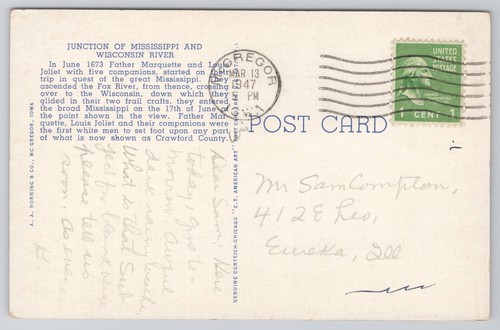 JUNCTION OF MISSISSIPPI AND
WISCONSIN RIVER
In June 1673 Father Marquette and Louis
Joliet with five companions, started on their
trip in quest of the great Mississippi. They
ascended the Fox River, from thence, crossing
over to the Wisconsin, down which they
glided in their two trail crafts, they entered
the broad Mississippi on the 17th of June at
the point shown in the view. Father Mar-
quette, Louis Joliet and their companions were
the first white men to set foot upon any part
of what is now shown as Crawford County.
A. A. HORNING & CO., MC GREGOR, IOWA
GENUINE CURTEICH-CHICAGO "C.T. AMERICAN ART"
McGREGOR
MAR 13
1947
PM
UNITED
STATES
POSTAGE
1 CENT 1
POST CARD
Mr Sam Compton,
412 E Leo,
Eureka, Ill
Dear Sam: Here
today. Gone to-
morrow. Awful
weather.
What is that Sub-
ject for
please tell us
soon. As ever,
K